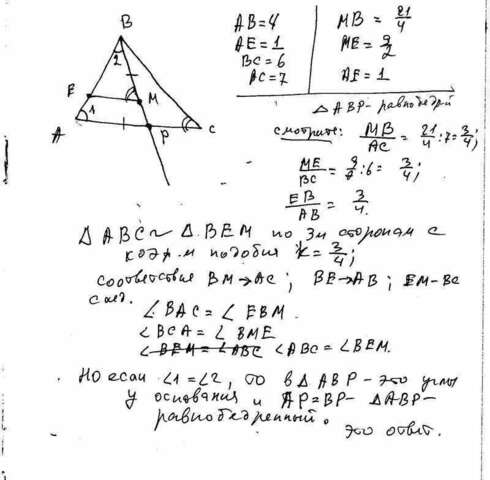 B
2
E
M
1
A
P
C
AB=4
AE=1
BC=6
AC=7
MB = 21/4
ME = 9/2
AE = 1
△ ABP - равнобедрй
смотрите: MB/AC = 21/4 : 7 = 3/4;
ME/BC = 9/2 : 6 = 3/4;
EB/AB = 3/4.
△ ABC ~ △ BEM по 3м сторонам с
коэф.м подобия k = 3/4;
соответствие BM→AC; BE→AB; EM-BC
след.
∠BAC = ∠EBM.
∠BCA = ∠BME
∠BEM = ∠ABC ∠ABC = ∠BEM.
Но если ∠1=∠2, то в △ABP - это углы
у основания и AP=BP - △ABP -
равнобедренный.
это ответ.